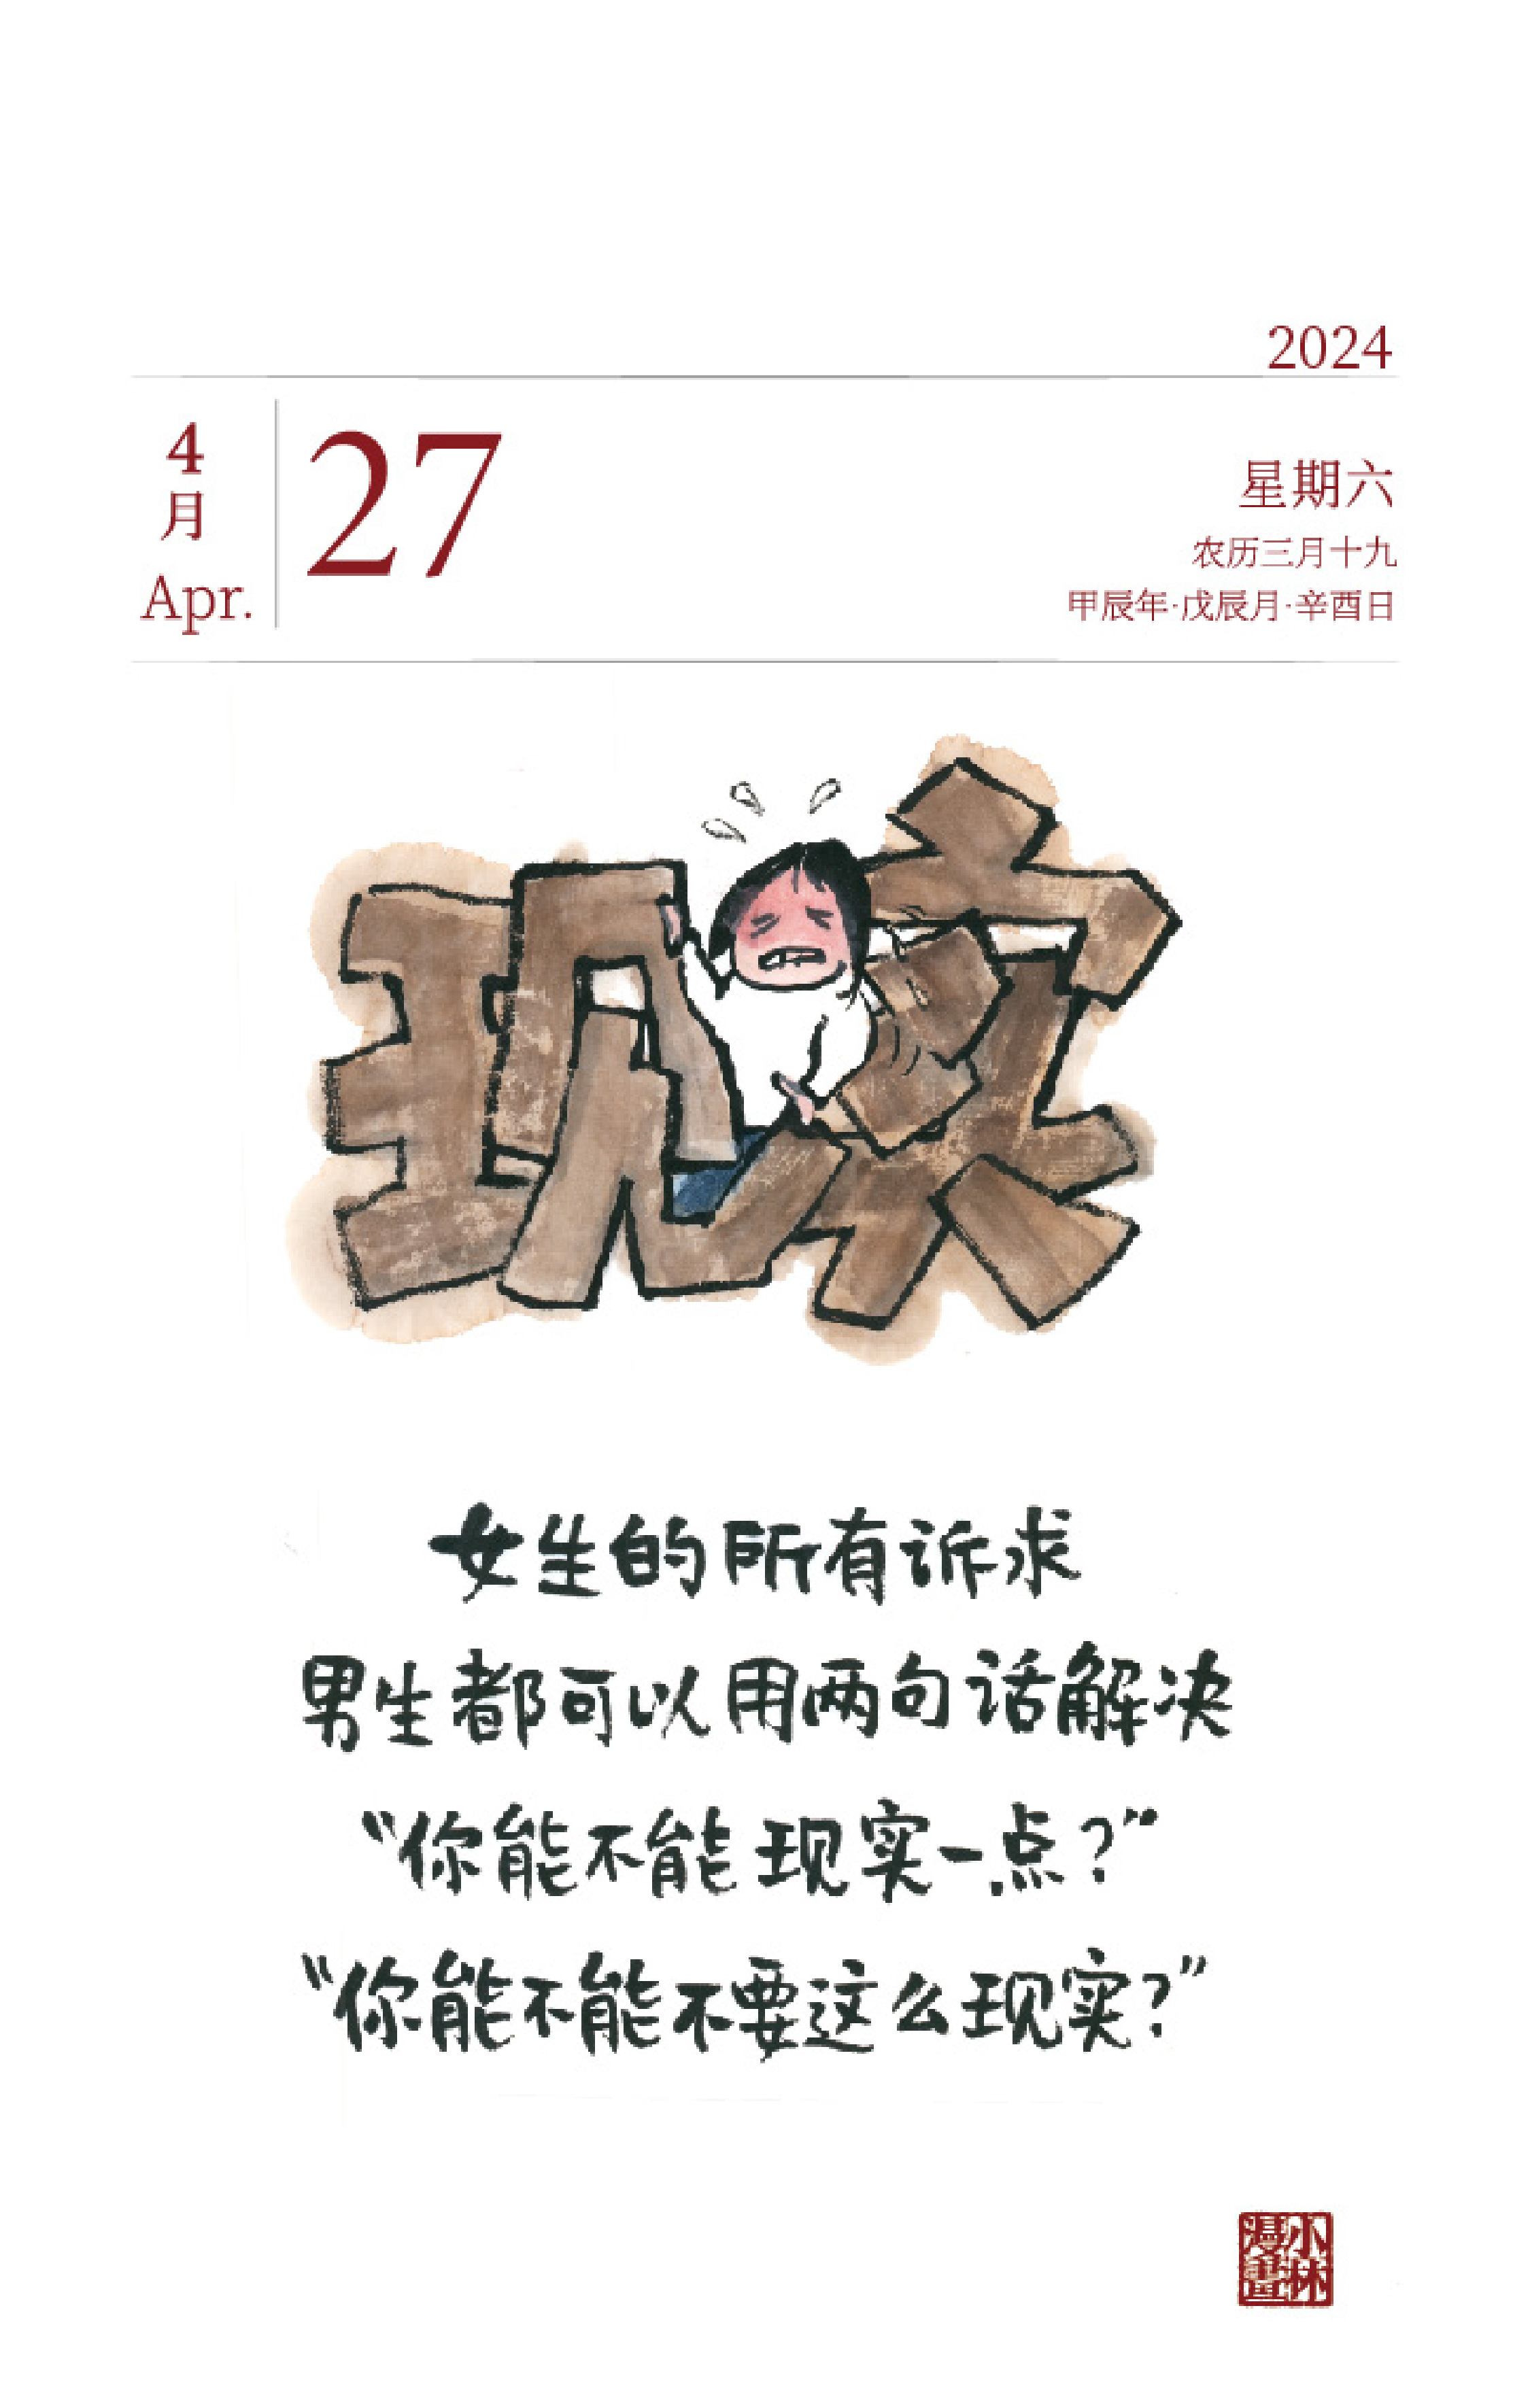 2024
4
月
Apr.
27
星期六
农历三月十九
甲辰年·戊辰月·辛酉日
现实
女生的所有诉求
男生都可以用两句话解决
“你能不能现实一点?”
“你能不能不要这么现实?”
小林
漫畫